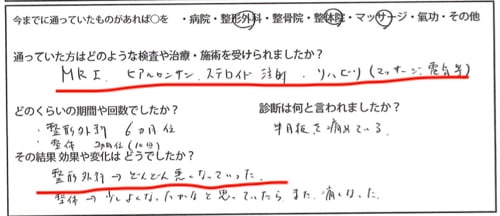 今までに通っていたものがあれば○を ・病院・整形外科・整骨院・整体院・マッサージ・氣功・その他
通っていた方はどのような検査や治療・施術を受けられましたか？
MRI、ヒアルロンサン、ステロイド注射、リハビリ(マッサージ、電気等)
どのくらいの期間や回数でしたか？
・整形外科 6カ月位
・整体 2カ月位(10回)
診断は何と言われましたか？
半月板を痛めている。
その結果 効果や変化は どうでしたか？
整形外科→どんどん悪くなっていった。
整体→少しよくなったかなと思っていたらまた、痛くなった。